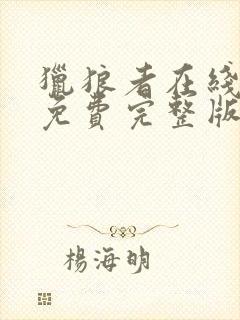 獵狼者在綫
免費完整版
楊海明